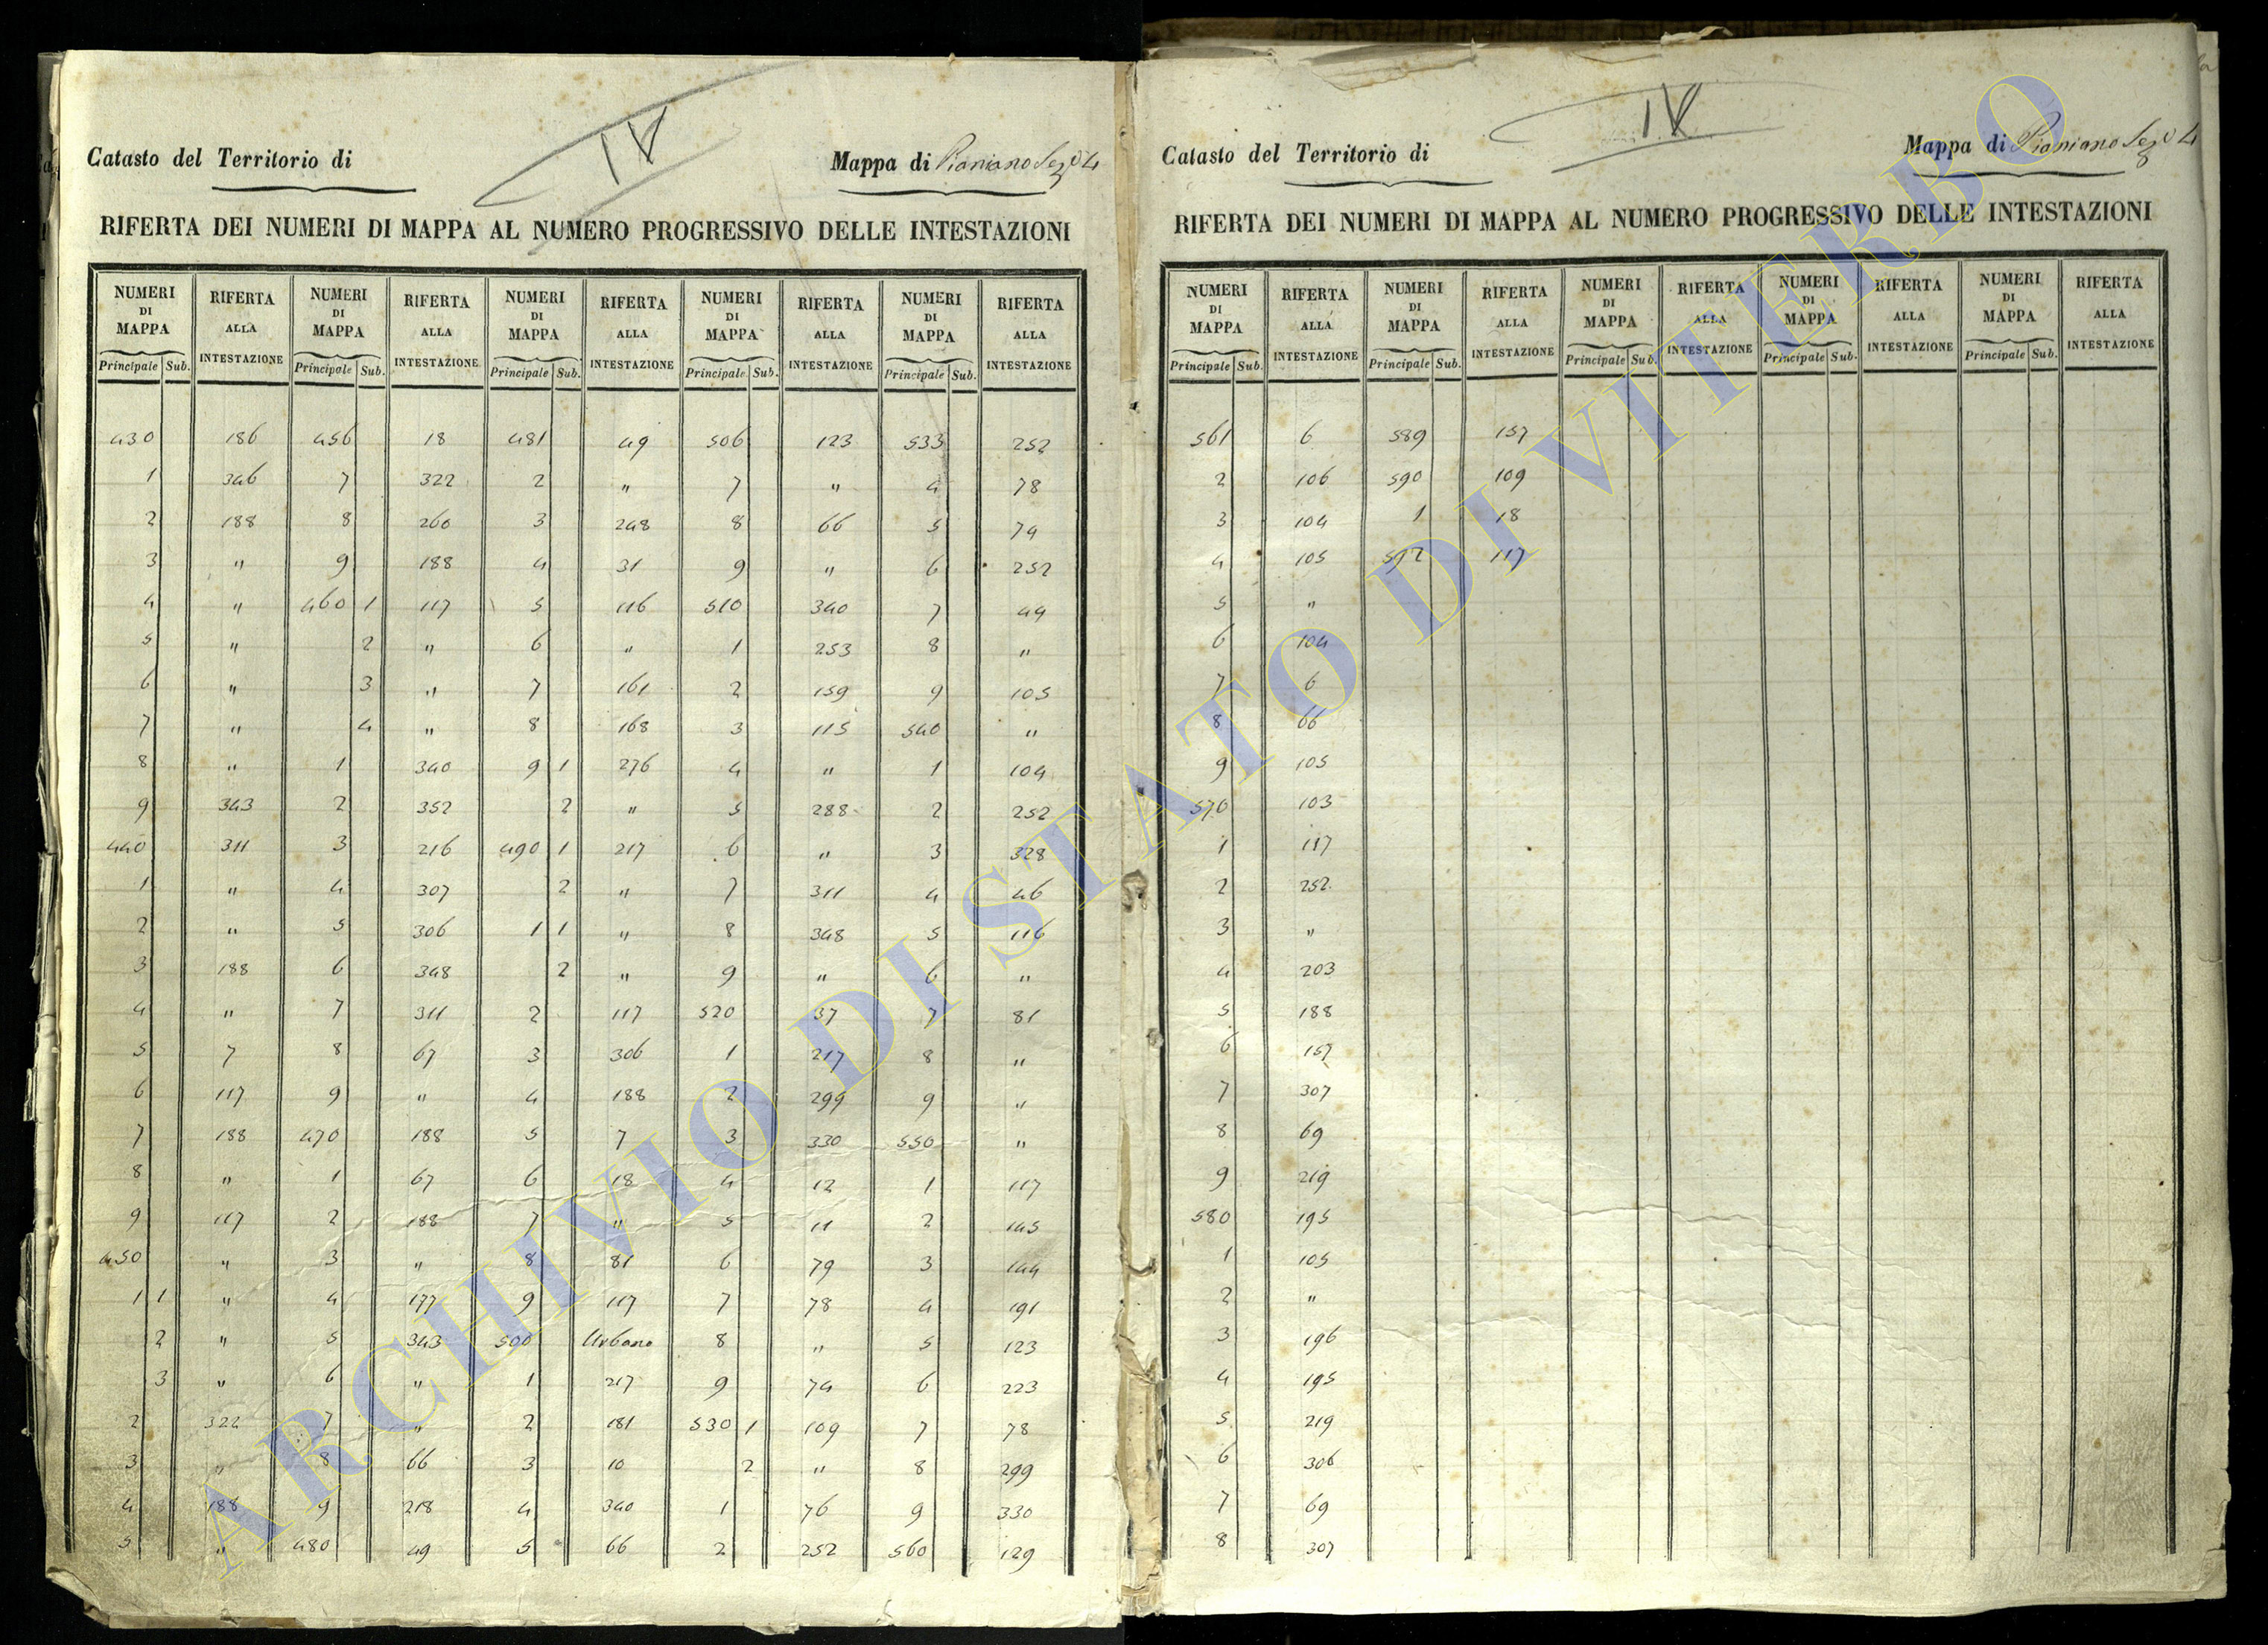 IV
Catasto del Territorio di
Mappa di Pianiano Sez.º 4
RIFERTA DEI NUMERI DI MAPPA AL NUMERO PROGRESSIVO DELLE INTESTAZIONI
NUMERI DI MAPPA RIFERTA ALLA INTESTAZIONE NUMERI DI MAPPA RIFERTA ALLA INTESTAZIONE NUMERI DI MAPPA RIFERTA ALLA INTESTAZIONE NUMERI DI MAPPA RIFERTA ALLA INTESTAZIONE NUMERI DI MAPPA RIFERTA ALLA INTESTAZIONE
Principale Sub. Principale Sub. Principale Sub. Principale Sub. Principale Sub.
430 186 456 18 481 49 506 123 533 252
1 346 7 322 2 " 7 " 4 78
2 188 8 260 3 248 8 66 5 74
3 " 9 188 4 31 9 " 6 252
4 " 460 1 117 5 116 510 340 7 44
5 " 2 " 6 " 1 253 8 "
6 " 3 " 7 161 2 159 9 105
7 " 4 " 8 168 3 115 540 "
8 " 1 340 9 1 276 4 " 1 104
9 343 2 352 2 " 5 288 2 252
440 311 3 216 490 1 217 6 " 3 328
1 " 4 307 2 " 7 311 4 46
2 " 5 306 1 1 " 8 348 5 116
3 188 6 348 2 " 9 " 6 "
4 " 7 311 2 117 520 37 7 81
5 7 8 67 3 306 1 217 8 "
6 117 9 " 4 188 2 299 9 "
7 188 470 188 5 7 3 330 550 "
8 " 1 67 6 18 4 12 1 117
9 117 2 188 7 " 5 11 2 145
450 " 3 " 8 81 6 79 3 144
1 1 " 4 177 9 117 7 78 4 191
2 " 5 343 500 Urbano 8 " 5 123
3 " 6 " 1 217 9 74 6 223
2 322 7 " 2 181 530 1 109 7 78
3 " 8 66 3 10 2 " 8 299
4 188 9 218 4 340 1 76 9 330
5 " 480 49 5 66 2 252 560 129
IV
Catasto del Territorio di
Mappa di Pianiano Sez.º 4
RIFERTA DEI NUMERI DI MAPPA AL NUMERO PROGRESSIVO DELLE INTESTAZIONI
NUMERI DI MAPPA RIFERTA ALLA INTESTAZIONE NUMERI DI MAPPA RIFERTA ALLA INTESTAZIONE NUMERI DI MAPPA RIFERTA ALLA INTESTAZIONE NUMERI DI MAPPA RIFERTA ALLA INTESTAZIONE NUMERI DI MAPPA RIFERTA ALLA INTESTAZIONE
Principale Sub. Principale Sub. Principale Sub. Principale Sub. Principale Sub.
561 6 589 157
2 106 590 109
3 104 1 18
4 105 592 117
5 "
6 104
7 6
8 66
9 105
570 103
1 117
2 252
3 "
4 203
5 188
6 157
7 307
8 69
9 219
580 195
1 105
2 "
3 196
4 195
5 219
6 306
7 69
8 307
ARCHIVIO DI STATO DI VITERBO